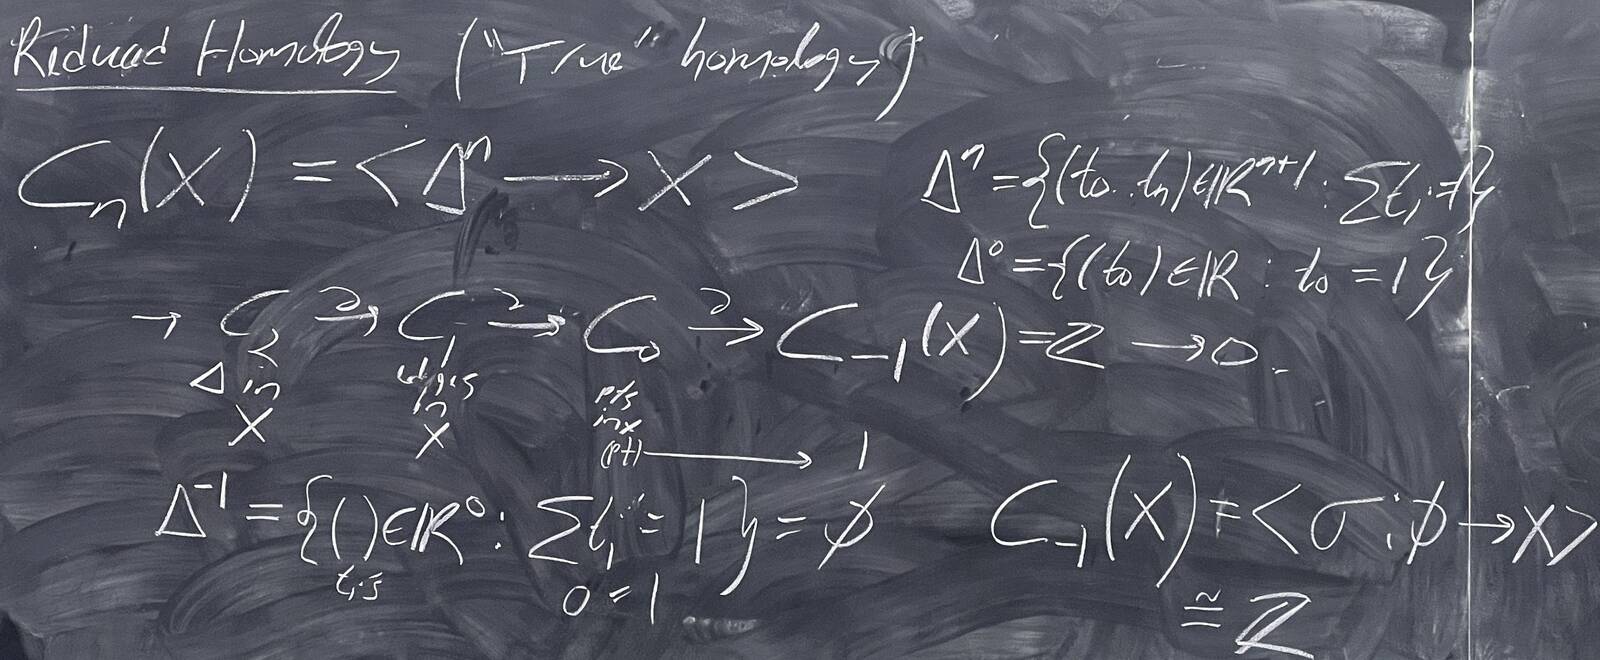 Reduced Homology ("True" homology)
Cₙ(X) = <Δⁿ → X>
Δⁿ = {(t₀..tₙ) ∈ ℝⁿ⁺¹ : Σtᵢ = 1}
Δ⁰ = {(t₀) ∈ ℝ : t₀ = 1}
→ C₂ ∂→ C₁ ∂→ C₀ ∂→ C₋₁(X) = ℤ → 0.
Δ in X
edges in X
pts in X
(pt) → 1
Δ⁻¹ = {() ∈ ℝ⁰ : Σtᵢ = 1} = ∅
tᵢ's
0 = 1
C₋₁(X) = <σ : ∅ → X>
≅ ℤ